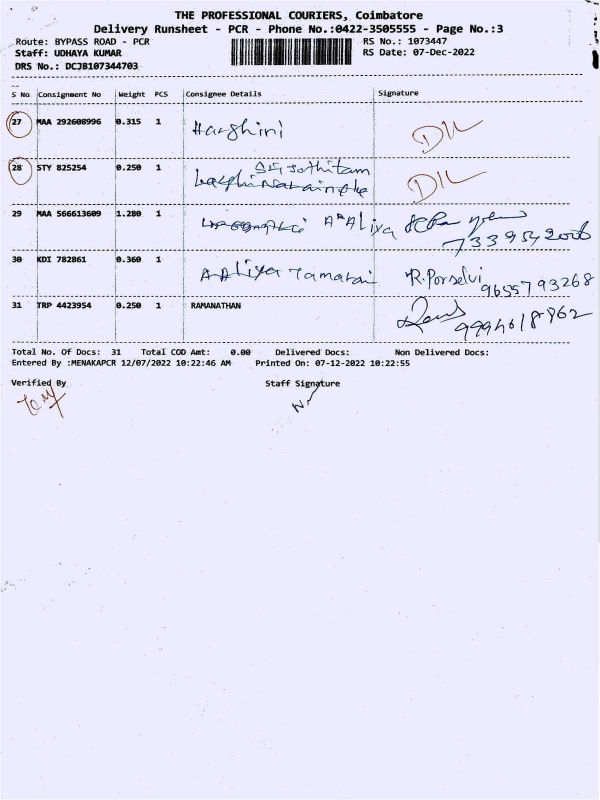 THE PROFESSIONAL COURIERS, Coimbatore
Delivery Runsheet - PCR - Phone No.:0422-3505555 - Page No.:3
Route: BYPASS ROAD - PCR
RS No.: 1073447
Staff: UDHAYA KUMAR
RS Date: 07-Dec-2022
DRS No.: DCJB107344703
S No Consignment No Weight PCS Consignee Details Signature
27 MAA 292608996 0.315 1 Harshini DIL
28 STY 825254 0.250 1 Sri Jothitam DIL
29 MAA 566613609 1.280 1 Aaliya
30 KDI 782861 0.360 1 AAliya Tamarai R. Porselvi 9655793268
31 TRP 4423954 0.250 1 RAMANATHAN 9994618962
Total No. Of Docs: 31 Total COD Amt: 0.00 Delivered Docs: Non Delivered Docs:
Entered By :MENAKAPCR 12/07/2022 10:22:46 AM Printed On: 07-12-2022 10:22:55
Verified By Staff Signature